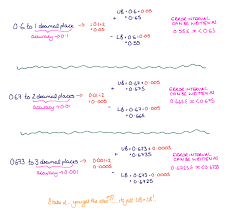 0.6 to 1 decimal place
accuracy → 0.1
0.1÷2
= 0.05
UB = 0.6 + 0.05
= 0.65
LB = 0.6 - 0.05
= 0.55
ERROR INTERVAL
CAN BE WRITTEN AS
0.67 to 2 decimal places
accuracy → 0.01
0.01÷2
= 0.005
UB = 0.67 + 0.005
= 0.675
LB = 0.67 - 0.005
= 0.665
ERROR INTERVAL
CAN BE WRITTEN AS
0.673 to 3 decimal places
accuracy → 0.001
0.001÷2
= 0.0005
UB = 0.673 + 0.0005
= 0.6735
LB = 0.673 - 0.0005
= 0.6725
ERROR INTERVAL
CAN BE WRITTEN AS
you get the idea